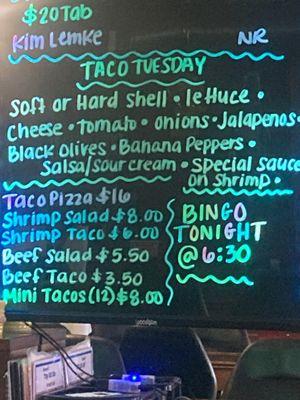 $20 Tab
Kim Lemke NR
TACO TUESDAY
Soft or Hard Shell • lettuce •
Cheese • tomato • onions • Jalapenos •
Black olives • Banana Peppers •
Salsa/sour cream • Special sauce
on Shrimp •
Taco Pizza $16
Shrimp Salad $8.00
Shrimp Taco $6.00
Beef Salad $5.50
Beef Taco $3.50
Mini Tacos (12) $8.00
BINGO
TONIGHT
@ 6:30